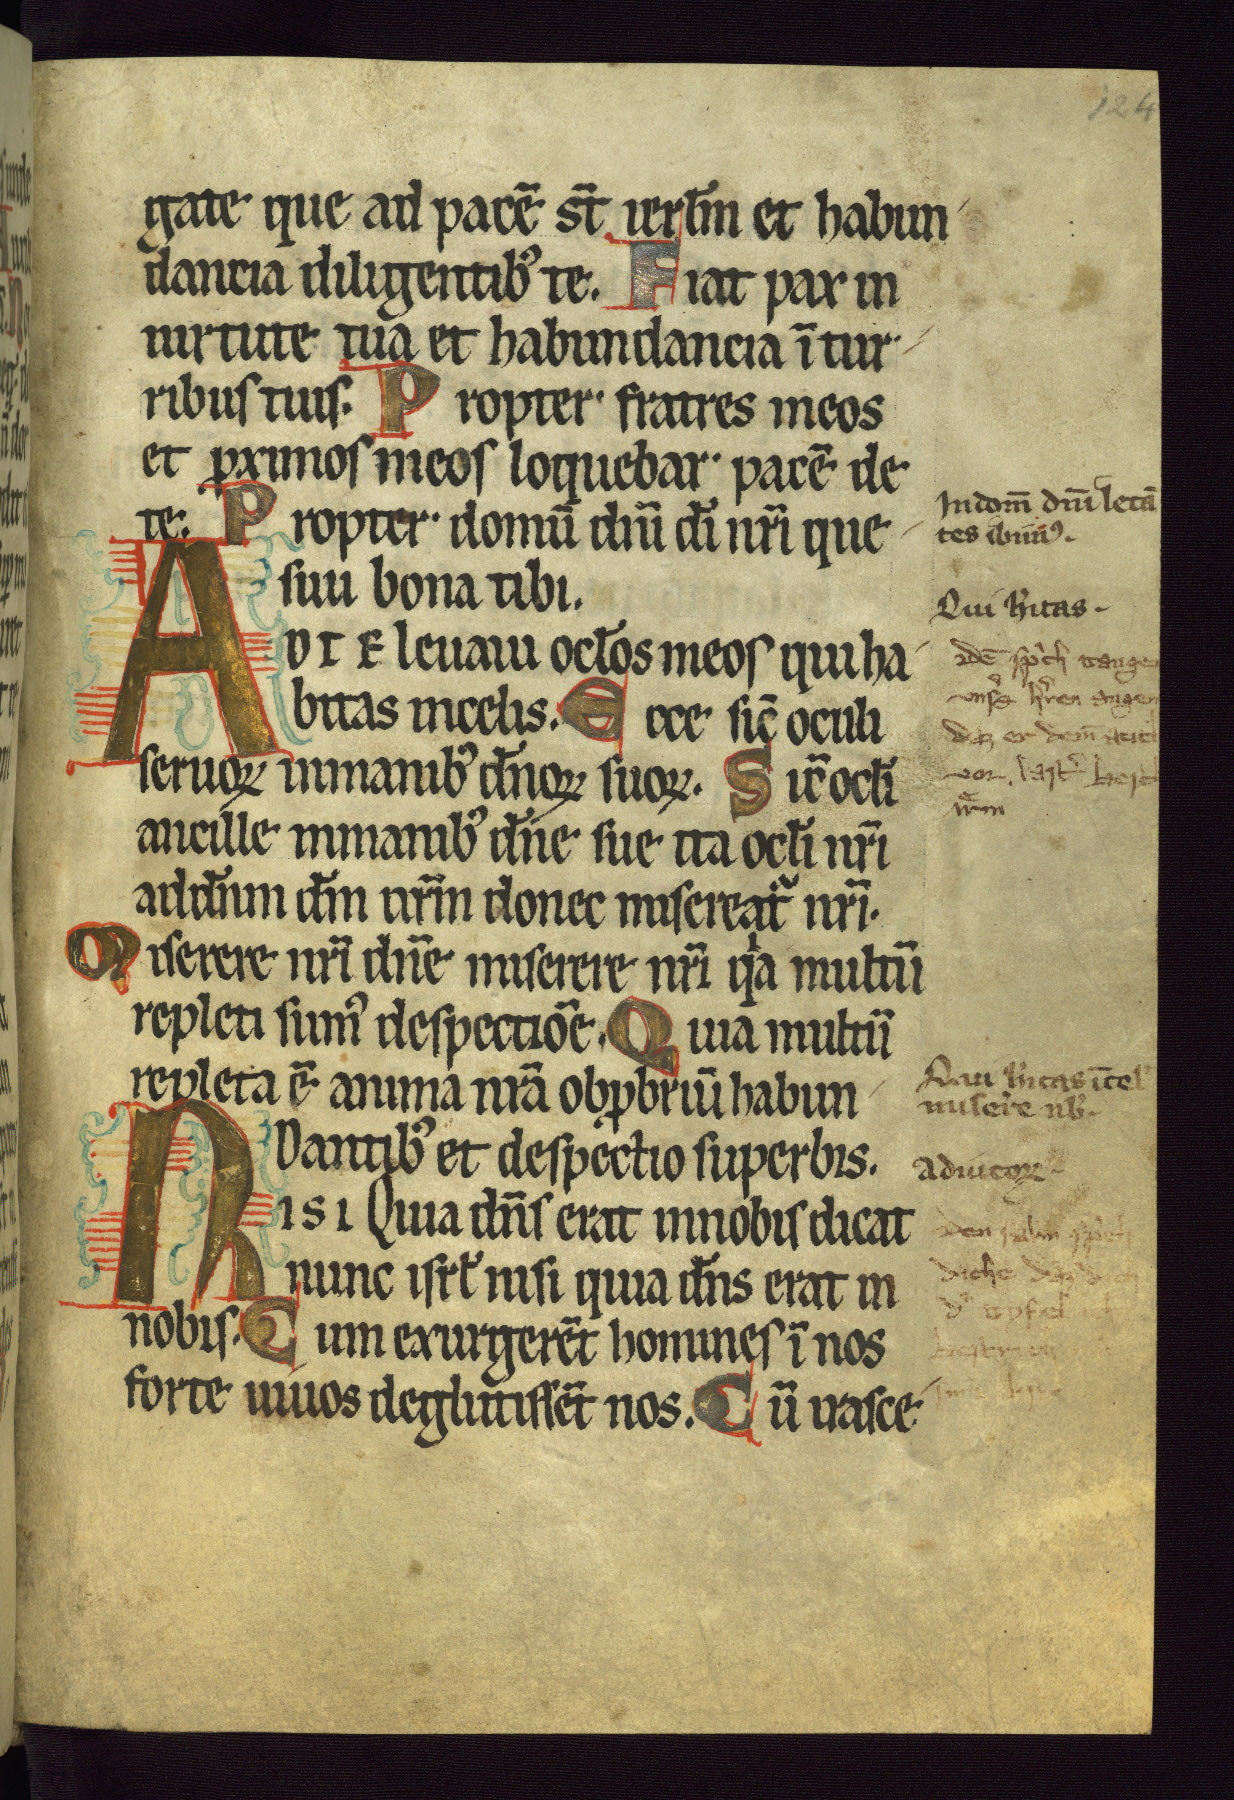 124
gate que ad pacē st̄ ierl̄m et habun
dancia diligentibꝰ te. Fiat pax in
uirtute tua et habundancia ī tur
ribus tuis. Propter fratres meos
et ꝓximos meos loquebar pacē de
te. Propter domū dn̄i dī nr̄i que
siui bona tibi.
AD TE leuaui ocl̄os meos qui ha
bitas in celis. Ecce sic̄ oculi
seruoꝝ in manibꝰ dn̄oꝝ suoꝝ. Sic̄ ocl̄i
ancille in manibꝰ dn̄e sue ita ocl̄i nr̄i
ad dn̄um dm̄ nr̄m donec misereat᷑ nr̄i.
Miserere nr̄i dn̄e miserere nr̄i qⁱa multū
repleti sumꝰ despectiōe. Quia multū
repleta ē anima nr̄a obꝓbriū habun
dantibꝰ et despectio superbis.
NISI Quia dn̄s erat in nobis dicat
nunc isrl̄ nisi quia dn̄s erat in
nobis. Cum exurgerēt homines ī nos
forte uiuos deglutissēt nos. Cū irasce
In dom̄ dn̄i letā
tes ibimꝰ.
Qui h̄itas
Qui h̄itas ī cel
miserēre nb̄
Adiutoꝝ